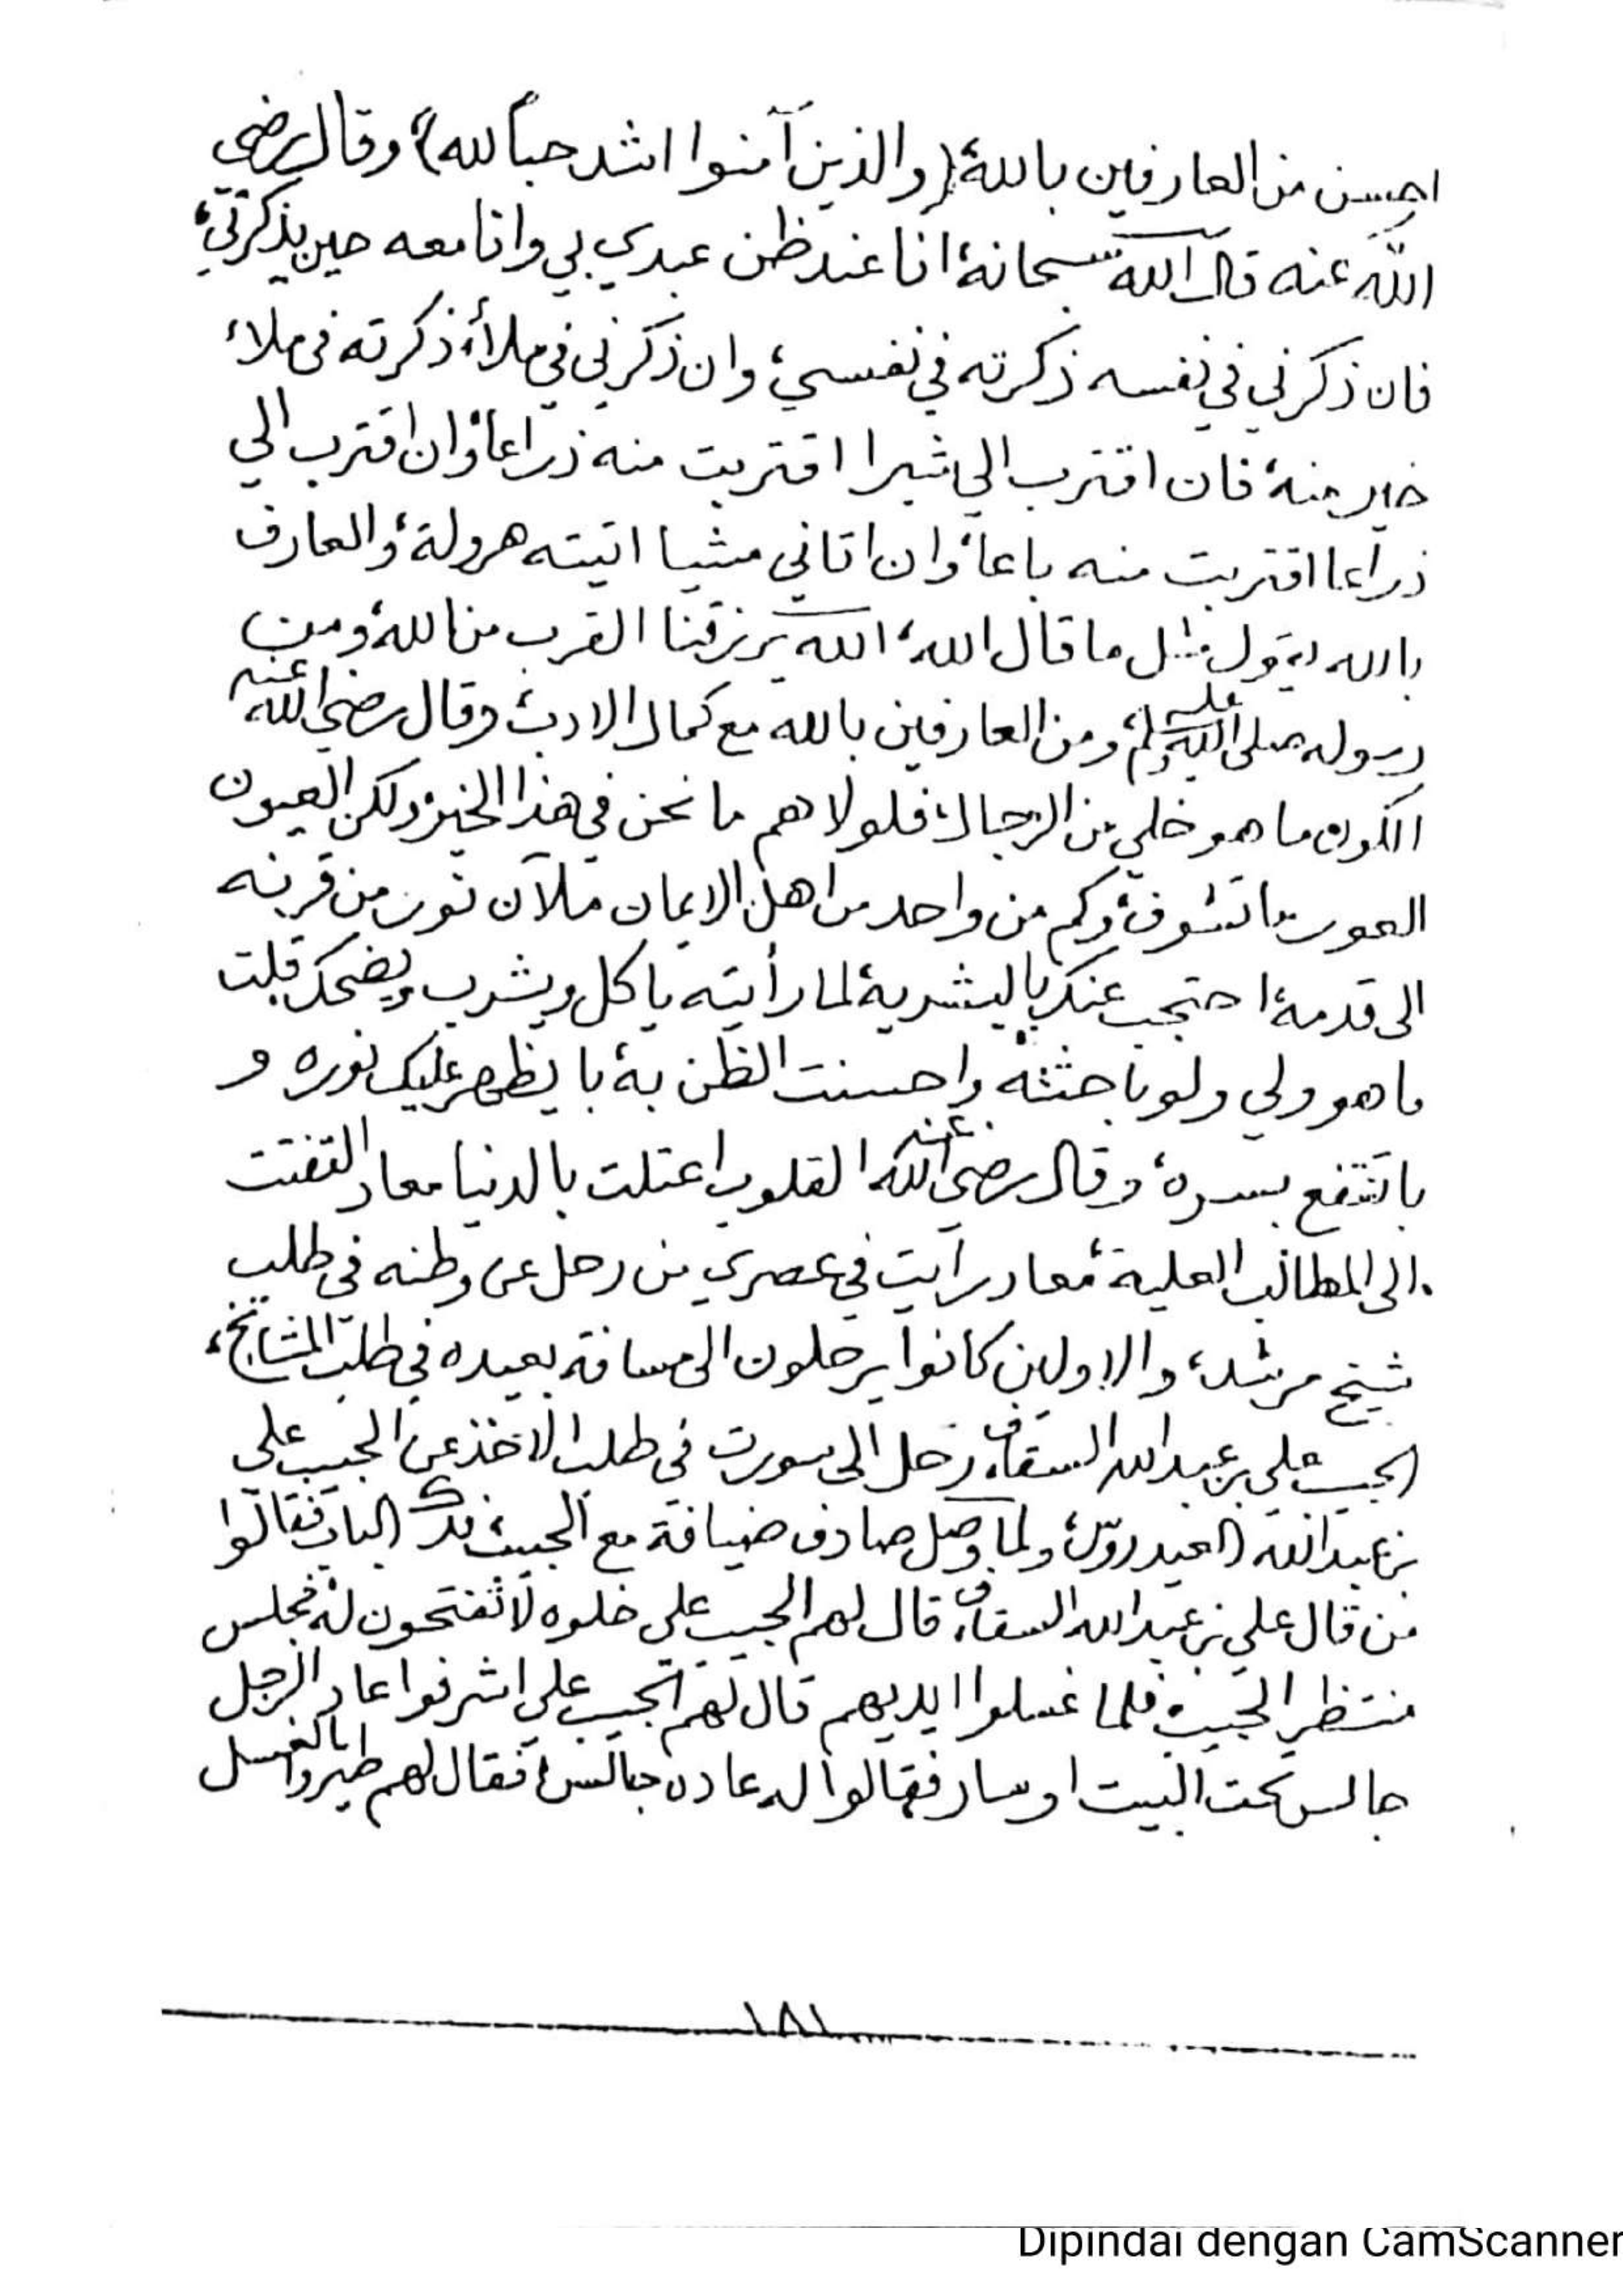 احسن من العارفين بالله، (والذين آمنوا اشد حباً لله) وقال رضي
الله عنه قال الله سبحانه، انا عند ظن عبدي بي وانا معه حين يذكرني،
فان ذكرني في نفسه ذكرته في نفسي، وان ذكرني في ملأ، ذكرته في ملاء
خير منه، فان اقترب الي شبرا اقتربت منه ذراعا، وان اقترب الي
ذراعا اقتربت منه باعا، وان اتاني مشيا اتيته هرولة، والعارف
بالله يقول مثل ما قال الله، الله يرزقنا القرب من الله، ومن
رسوله صلى الله عليه وسلم، ومن العارفين بالله مع كمال الادب، وقال رضي الله عنه
الكون ما هو خلي من الرجال، فلولا هم ما نحن في هذا الخير، ولكن العيون
العور ما تشوف، وكم من واحد من اهل الايمان ملآن نور من قرنه
الى قدمه، احتجب عنك بالبشرية، لما رأيته ياكل ويشرب ويضحك قلت
ما هو ولي ولو باحثته واحسنت الظن به، با يظهر عليك نوره و
با تنتفع بسره، وقال رضي الله عنه القلوب اعتلت بالدنيا معاد التفتت
الى المطالب العلية، معاد رايت في عصري من رحل عن وطنه في طلب
شيخ مرشد، والاولين كانوا يرحلون الى مسافة بعيده في طلب المشايخ،
الحبيب علي بن عبدالله السقاف رحل الى سورت في طلب الاخذ عن الحبيب علي
بن عبدالله العيدروس، ولما وصل صادف ضيافة مع الحبيب، فدق الباب فقالوا
من قال علي بن عبدالله السقاف، قال لهم الحبيب علي خلوه لا تفتحون له، فجلس
منتظر الحبيب، فلما غسلوا ايديهم قال لهم الحبيب علي اشرفوا عاد الرجل
جالس تحت البيت او سار فقالوا له عاده جالس، فقال لهم طيروا بالغسل
١٨١
Dipindai dengan CamScanner